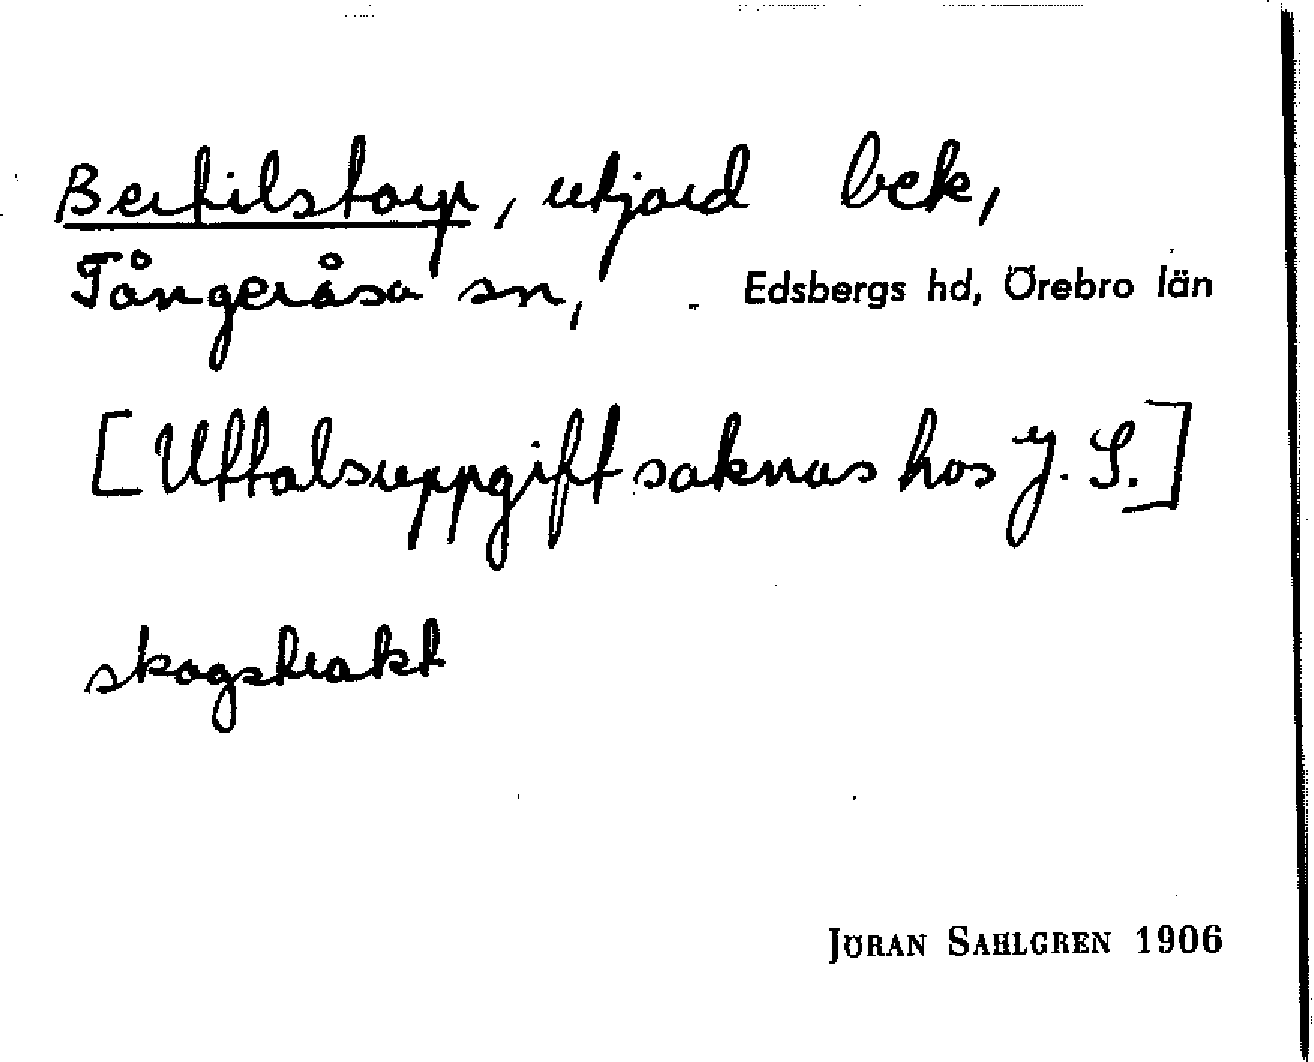 Bertilstorp, utjord bek,
Tångeråsa sn, Edsbergs hd, Örebro län
[Uttalsuppgift saknas hos J. S.]
skogstrakt
JÖRAN SAHLGREN 1906